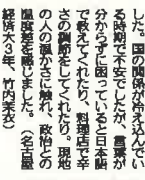 した。国の関係が冷え込んでい
る時期で不安でしたが、言葉が
分からずに困っていると日本語
で教えてくれたり、料理店で辛
さの調節をしてくれたり。現地
の人の温かさに触れ、政治との
温度差を感じました。（名古屋
経済大3年、竹内茉衣）